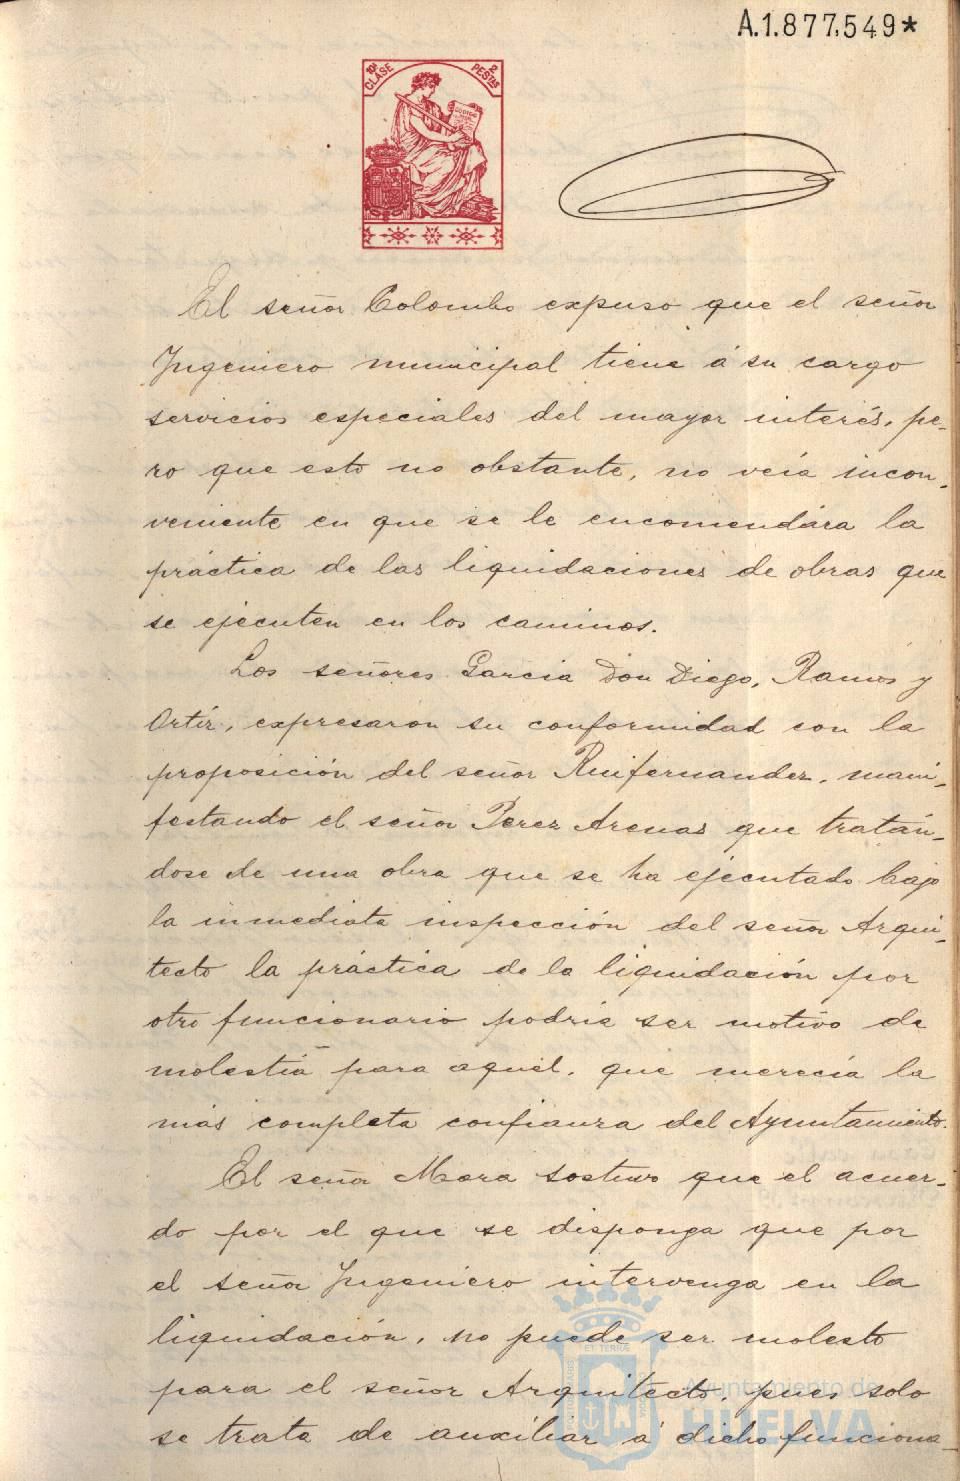 A.1.877,549*
10ª CLASE 2 PESTAS
CODIGO
El señor Colombo expuso que el señor
Ingeniero municipal tiene á su cargo
servicios especiales del mayor interés, pe-
ro que esto no obstante, no veía incon-
veniente en que se le encomendára la
práctica de las liquidaciones de obras que
se ejecuten en los caminos.
Los señores García Don Diego, Ramos y
Ortiz, expresaron su conformidad con la
proposición del señor Ruifernandez, mani-
festando el señor Perez Arenas que tratán-
dose de una obra que se ha ejecutado bajo
la inmediata inspección del señor Arqui-
tecto la práctica de la liquidación por
otro funcionario podría ser motivo de
molestia para aquél, que merecía la
más completa confianza del Ayuntamiento.
El señor Mora sostuvo que el acuer-
do por el que se disponga que por
el señor Ingeniero intervenga en la
liquidación, no puede ser molesto
para el señor Arquitecto, pues solo
se trata de auxiliar á dicho funciona-
ET TERRÆ
Ayuntamiento de
HUELVA